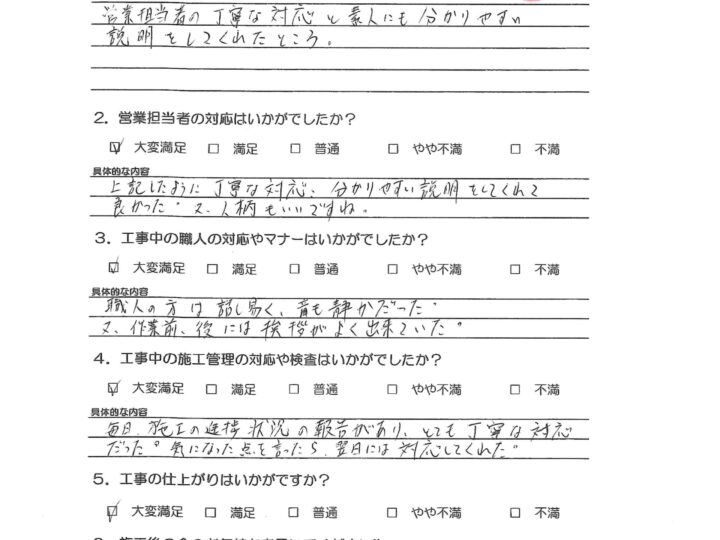 営業担当者の丁寧な対応と素人にも分かりやすい
説明をしてくれたところ。
2. 営業担当者の対応はいかがでしたか?
☑ 大変満足 □ 満足 □ 普通 □ やや不満 □ 不満
具体的な内容
上記したように丁寧な対応、分かりやすい説明をしてくれて
良かった。又、人柄もいいですね。
3. 工事中の職人の対応やマナーはいかがでしたか?
☑ 大変満足 □ 満足 □ 普通 □ やや不満 □ 不満
具体的な内容
職人の方は話し易く、音も静かだった。
又、作業前、後には挨拶がよく出来ていた。
4. 工事中の施工管理の対応や検査はいかがでしたか?
☑ 大変満足 □ 満足 □ 普通 □ やや不満 □ 不満
具体的な内容
毎日、施工の進捗状況の報告があり、とても丁寧な対応
だった。気になった点を言ったら、翌日には対応してくれた。
5. 工事の仕上がりはいかがですか?
☑ 大変満足 □ 満足 □ 普通 □ やや不満 □ 不満